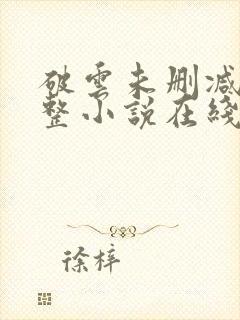 破雲未删减
整小說在綫
徐梓